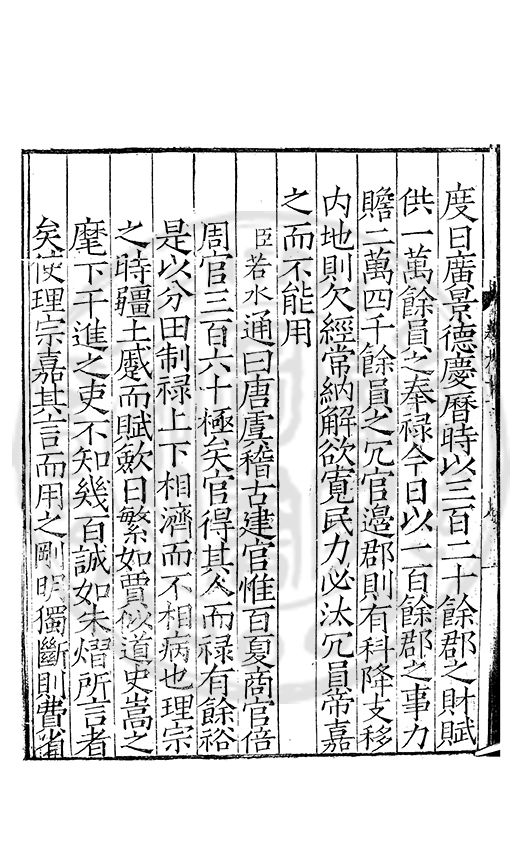 度日廣景德慶曆時以三百二十餘郡之財賦
供一萬餘員之奉禄今日以一百餘郡之事力
贍二萬四千餘員之冗官邉郡則有科降支移
内地則欠經常納解欲寬民力必汰冗員帝嘉
之而不能用
臣若水通曰唐虞稽古建官惟百夏商官倍
周官三百六十極矣官得其人而禄有餘裕
是以分田制禄上下相濟而不相病也理宗
之時疆土蹙而賦歛日繁如賈似道史嵩之
麾下干進之吏不知幾百誠如朱熠所言者
矣使理宗嘉其言而用之剛明獨斷則費省